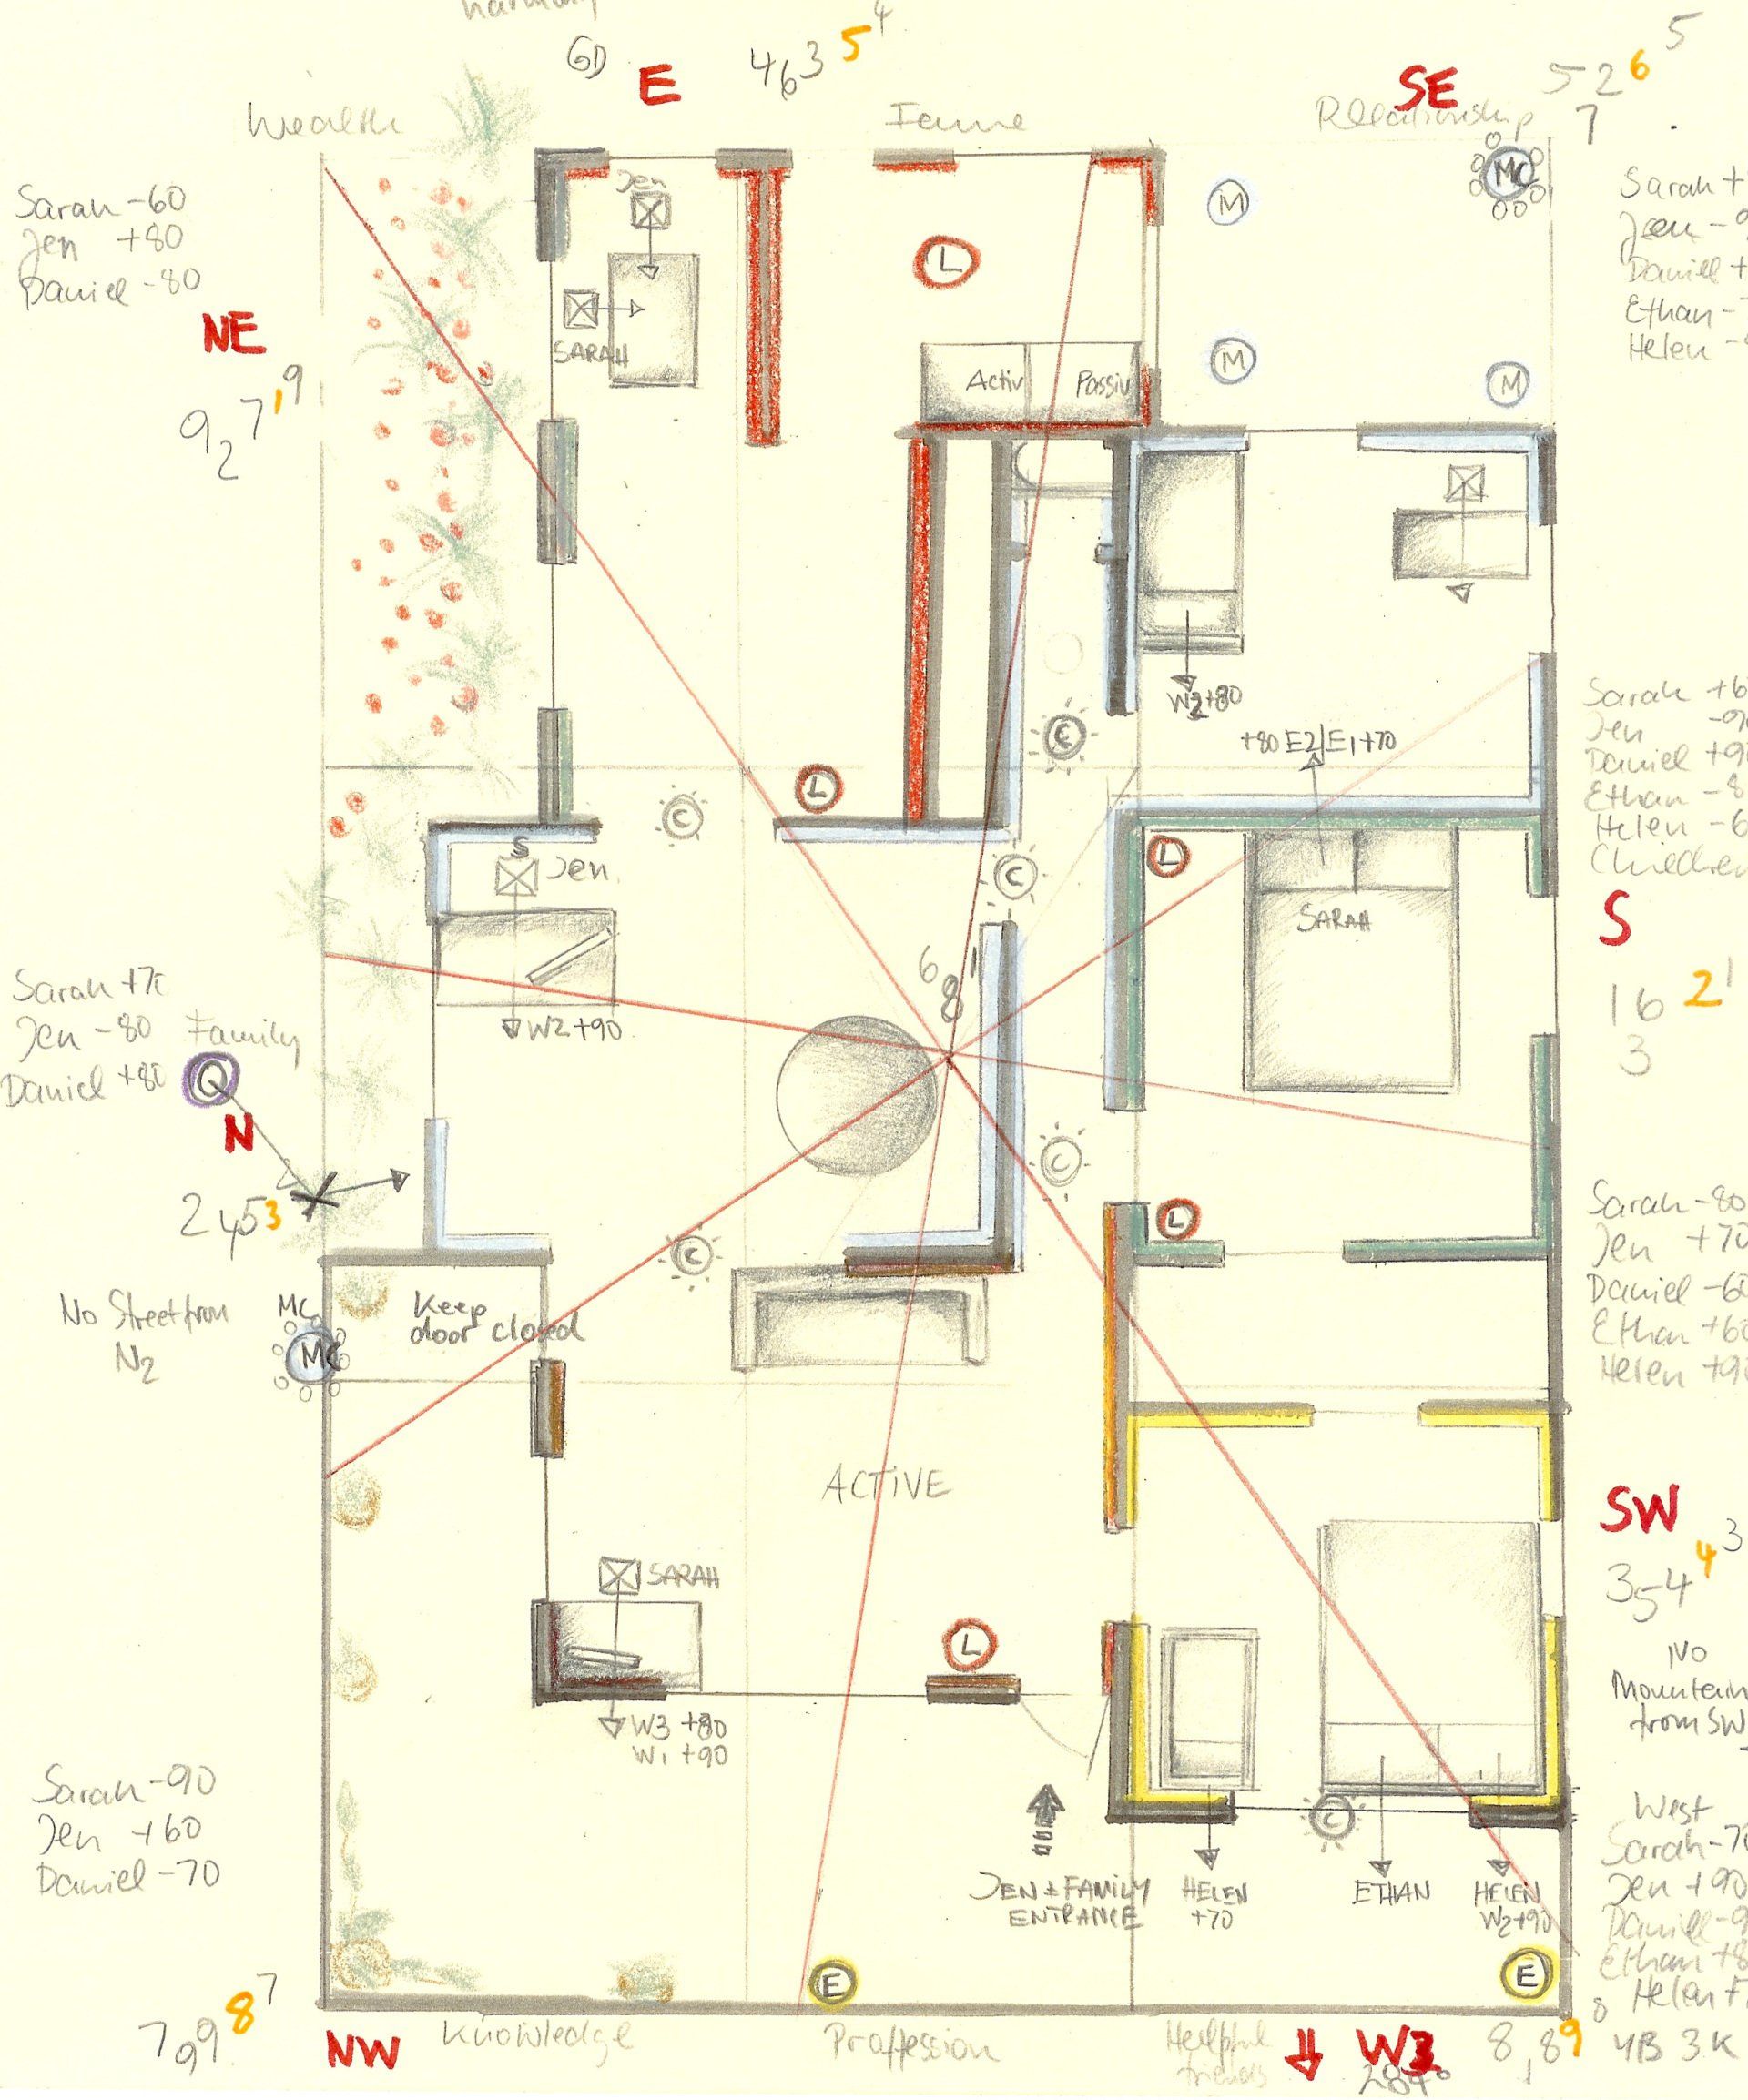 harmony
GD
E
463 5 4
SE
5 2 6 5
7
Wealth
Fame
Relationship
MC
Sarah -60
Jen +80
Daniel -80
NE
9 2 7 1 9
Jen
SARAH
L
Activ
Passiv
M
M
M
Sarah +
Jen -9
Daniel +
Ethan -
Helen -
W2+80
+80 E2 E1+70
Sarah +6
Jen -90
Daniel +90
Ethan -8
Helen -6
Children
C
L
C
C
L
S
Jen
SARAH
S
1 6 2 1
3
6 8 1
W2+90
Sarah +70
Jen -80
Daniel +80
Family
Q
N
2 4 5 3
C
C
L
Sarah -80
Jen +70
Daniel -60
Ethan +60
Helen +90
No Street from
N2
MC
MC
Keep
door closed
ACTIVE
SW
3 5 4 4 3
SARAH
L
No
Mountain
from SW
W3 +80
W1 +90
Sarah -90
Jen +60
Daniel -70
C
JEN + FAMILY
ENTRANCE
HELEN
+70
ETHAN
HELEN
W2+90
West
Sarah -70
Jen +90
Daniel -9
Ethan +8
Helen +
E
E
7 9 9 8 7
NW
Knowledge
Proffession
Helpful
friends
W3
284°
8 1 8 9 8
4B 3K